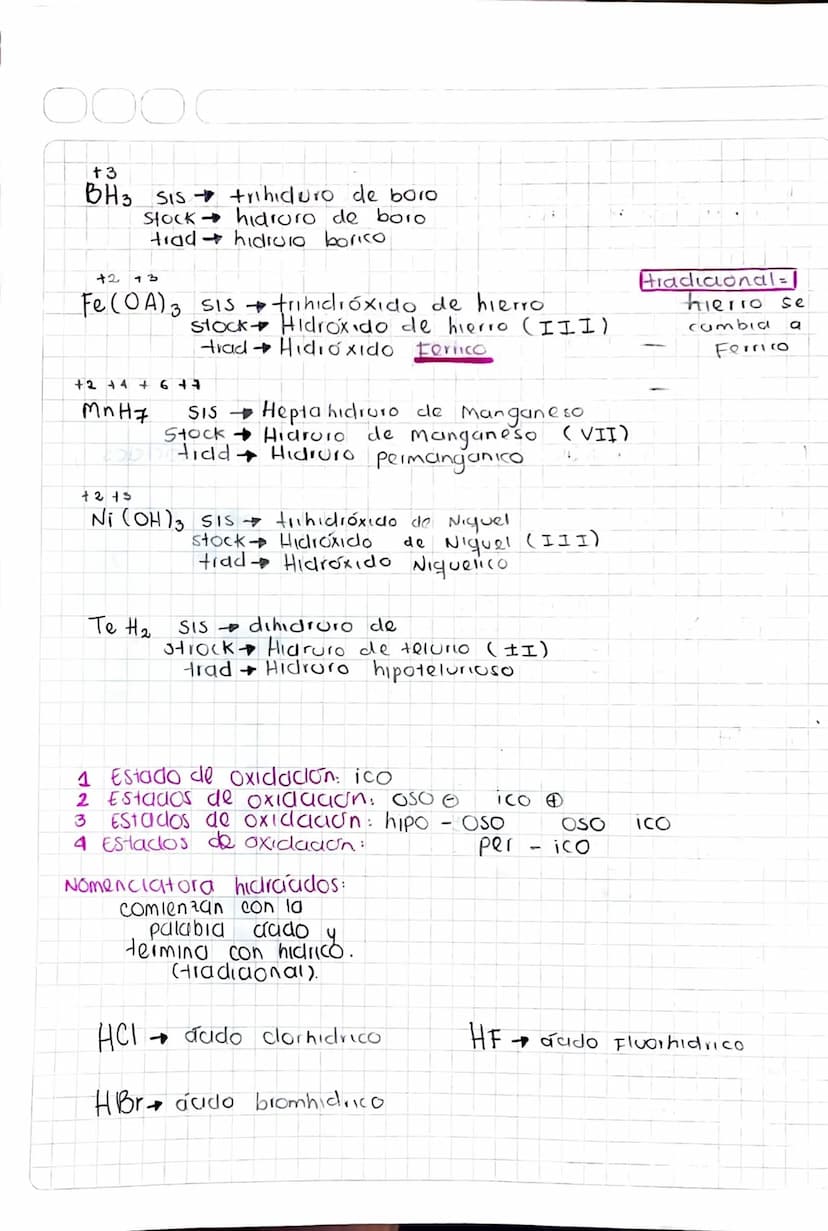 +3
BH3 sis → trihiduro de boro
stock → hidroro de boro
trad → hidruro borico
+2 +3
Fe(OA)3 sis → trihidróxido de hierro
stock → Hidróxido de hierro (III)
trad → Hidróxido Ferrico
tradicional=
hierro se
cambia a
Ferrico
+2 +4 +6 +7
MnH7 sis → Heptahidruro de Manganeso
stock → Hidruro de manganeso (VII)
trad → Hidruro permanganico
+2 +3
Ni(OH)3 sis → trihidróxido de Niquel
stock → Hidróxido de Niquel (III)
trad → Hidróxido Niquelico
TeH2 sis → dihidruro de
strock → Hidruro de telurio (±I)
trad → Hidruro hipotelurioso
1 Estado de oxidación: ico
2 Estados de oxidación: oso ⊖ ico ⊕
3 Estados de oxidación: hipo - oso oso ico
4 Estados de oxidación: per - ico
Nomenclatora hidrácidos:
comienzan con la
palabra ácido y
termina con hidrico.
(tradicional).
HCl → ácido clorhidrico HF → ácido Fluorhidrico
HBr → ácido bromhidrico